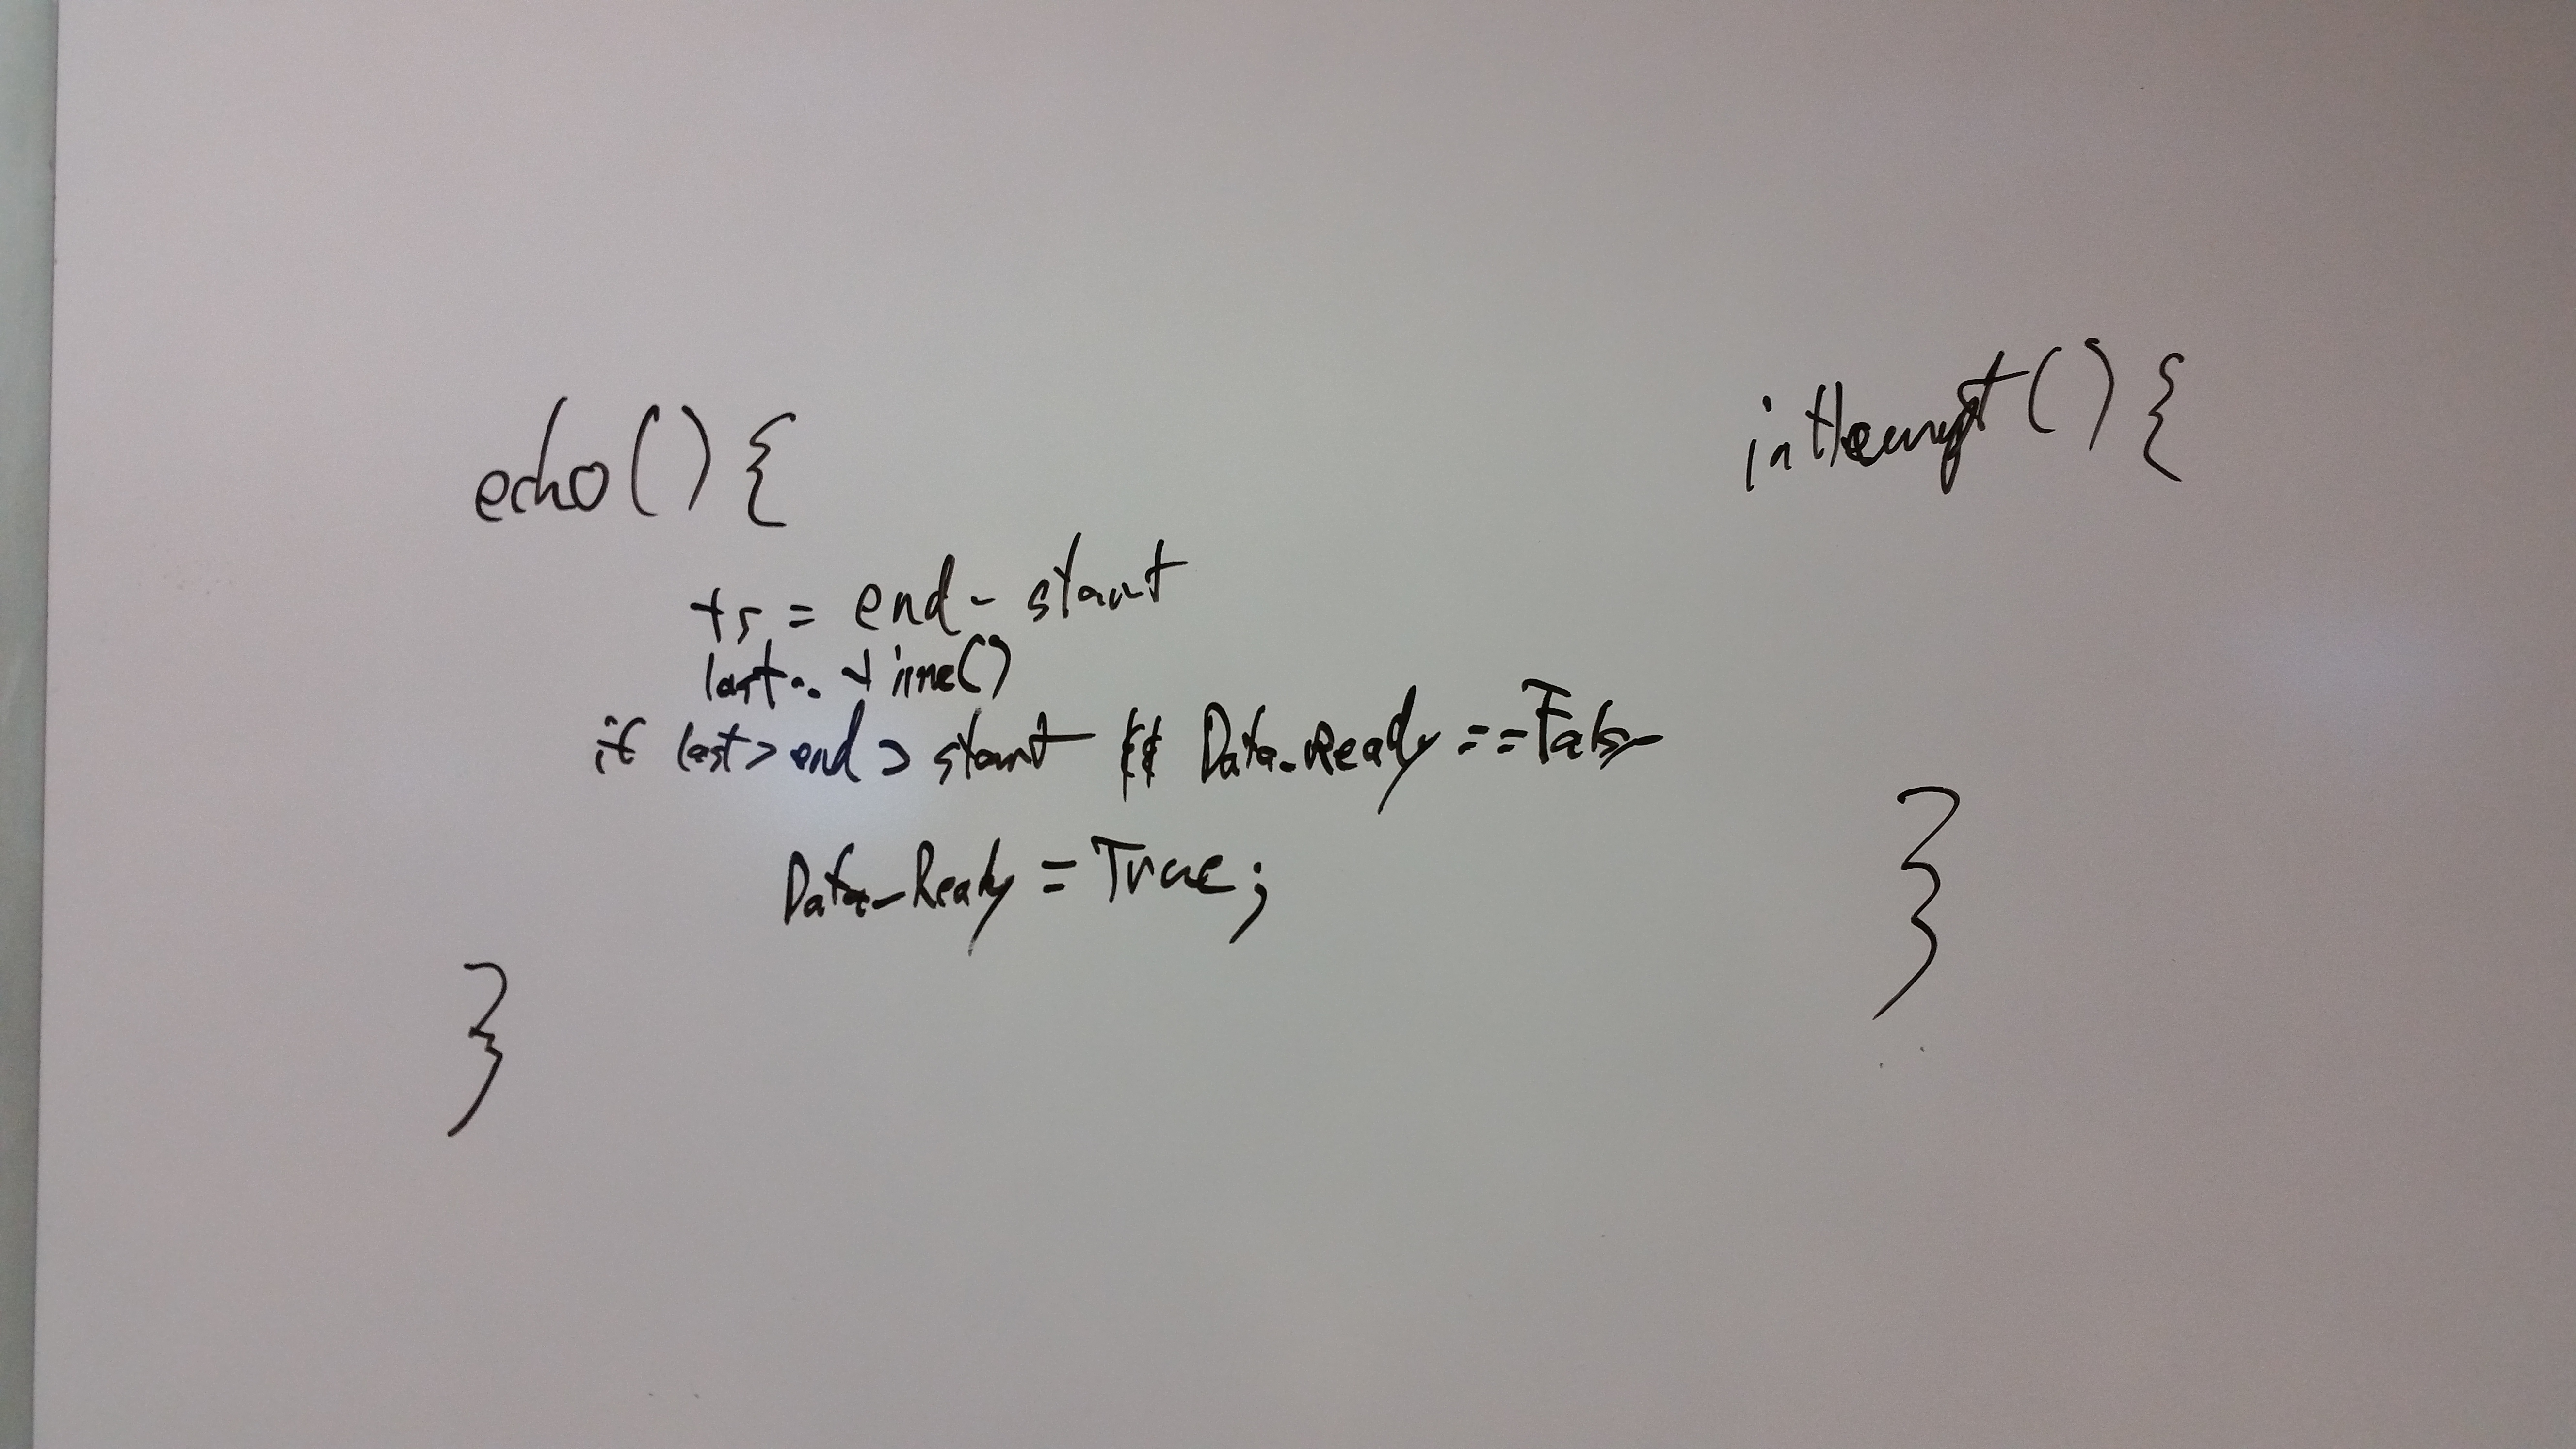 echo(){
ts = end - start
last = time()
if last > end > start && Data_Ready == False
Data_Ready = True;
}
interrupt(){
}